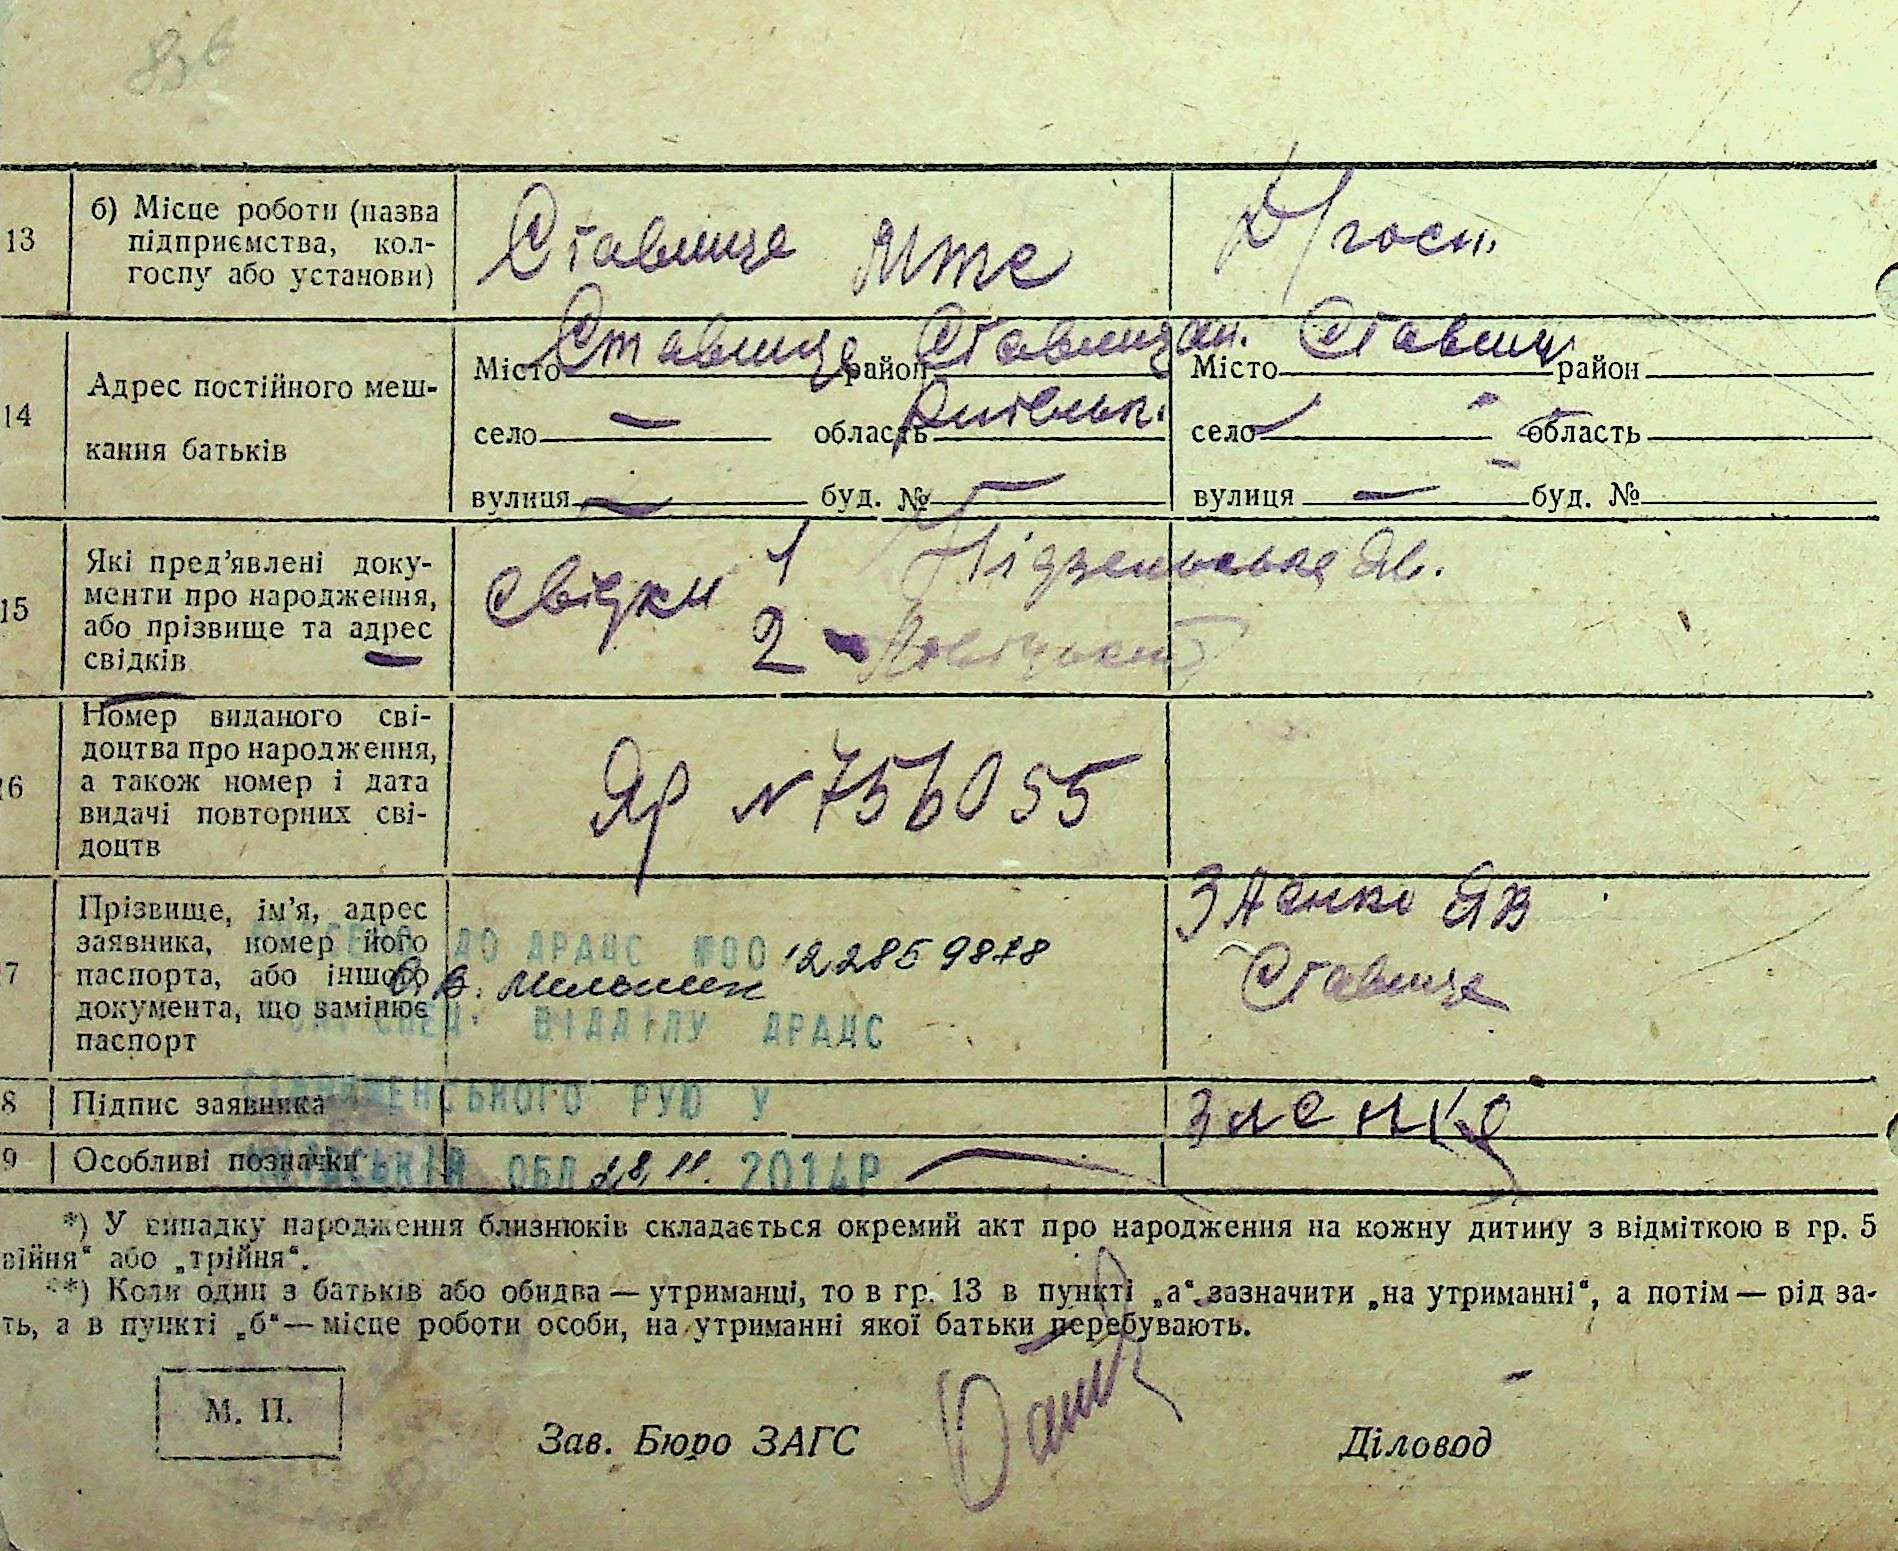 13
б) Місце роботи (назва
підприємства, кол-
госпу або установи)
Ставище Мтс
Д/госп.
14
Адрес постійного меш-
кання батьків
Місто Ставище район Ставищан.
село — область Київськ.
вулиця — буд. № —
Місто Ставищ район
село область
вулиця — буд. №
15
Які пред'явлені доку-
менти про народження,
або прізвище та адрес
свідків
Свідки 1
2 -
16
Номер виданого сві-
доцтва про народження,
а також номер і дата
видачі повторних сві-
доцтв
ЯР № 756055
7
Прізвище, ім'я, адрес
заявника, номер його
паспорта, або іншого
документа, що замінює
паспорт
ДО ДРАЦС №00 12285 9878
ВІДДІЛУ ДРАЦС
Зленко ЯВ
Ставище
8
Підпис заявника
СТАВИЩЕНСЬКОГО РУЮ У
Зленко
9
Особливі позначки
КИЇВСЬКІЙ ОБЛ 28.11. 2014Р
*) У випадку народження близнюків складається окремий акт про народження на кожну дитину з відміткою в гр. 5
війня“ або „трійня“.
**) Коли один з батьків або обидва — утриманці, то в гр. 13 в пункті „а“ зазначити „на утриманні“, а потім — рід за-
ть, а в пункті „б“ — місце роботи особи, на утриманні якої батьки перебувають.
М. П.
Зав. Бюро ЗАГС
Діловод